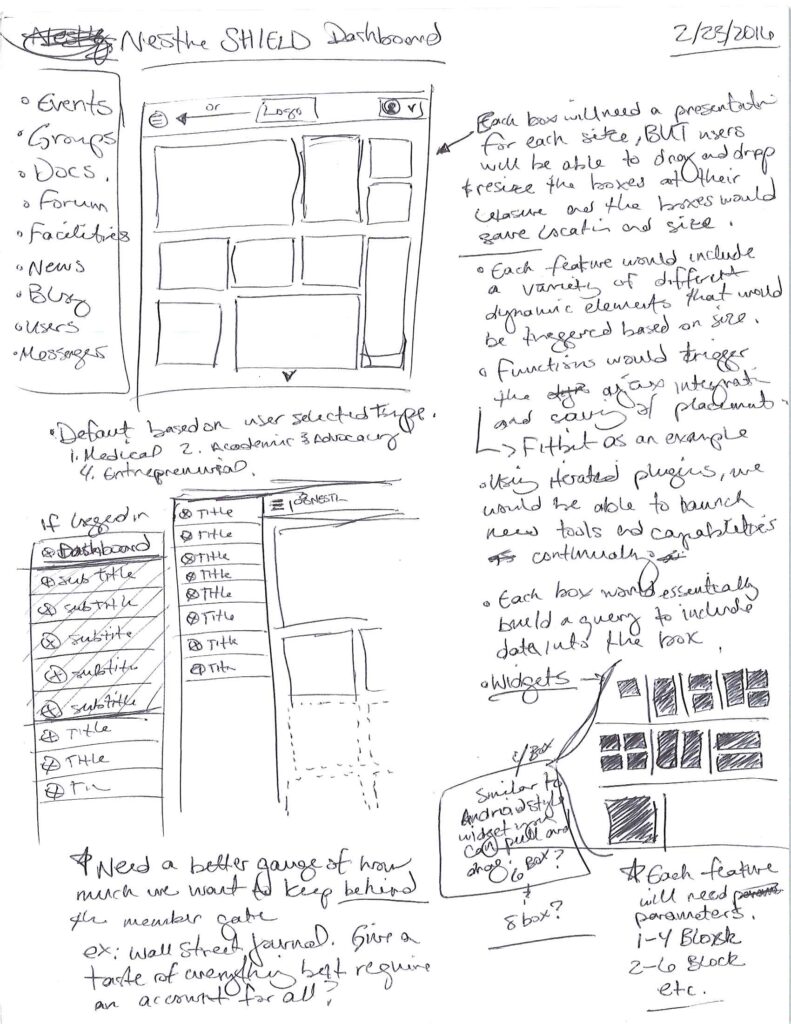 Nesthe SHIELD Dashboard
2/23/2016
• Events
• Groups
• Docs.
• Forum
• Facilities
• News
• Blog
• Users
• Messages
or
Logo
Each box will need a presentation
for each size, BUT users
will be able to drag and drop
& resize the boxes at their
leasure and the boxes would
save location and size.
• Each feature would include
a variety of different
dynamic elements that would
be triggered based on size.
• Functions would trigger
the ajax integration
and saving of placement.
→ Fitbit as an example
• Using iterated plugins, we
would be able to launch
new tools and capabilities
continually.
• Each box would essentially
build a query to include
data into the box.
• Widgets →
• Default based on user selected type.
1. Medical 2. Academic 3 Advocacy
4. Entrepreneurial.
If logged in
Dashboard
sub title
subtitle
subtitle
subtitle
subtitle
Title
Title
Title
Title
Title
Title
Title
Title
Title
Title
4 Box
Similar to
Android style
widget you
can pull and
drag.
6 Box?
8 box?
* Need a better gauge of how
much we want to keep behind
the member gate
ex: Wall Street Journal. Give a
taste of everything but require
an account for all?
* Each feature
will need
parameters.
1-4 Block
2-6 Block
etc.